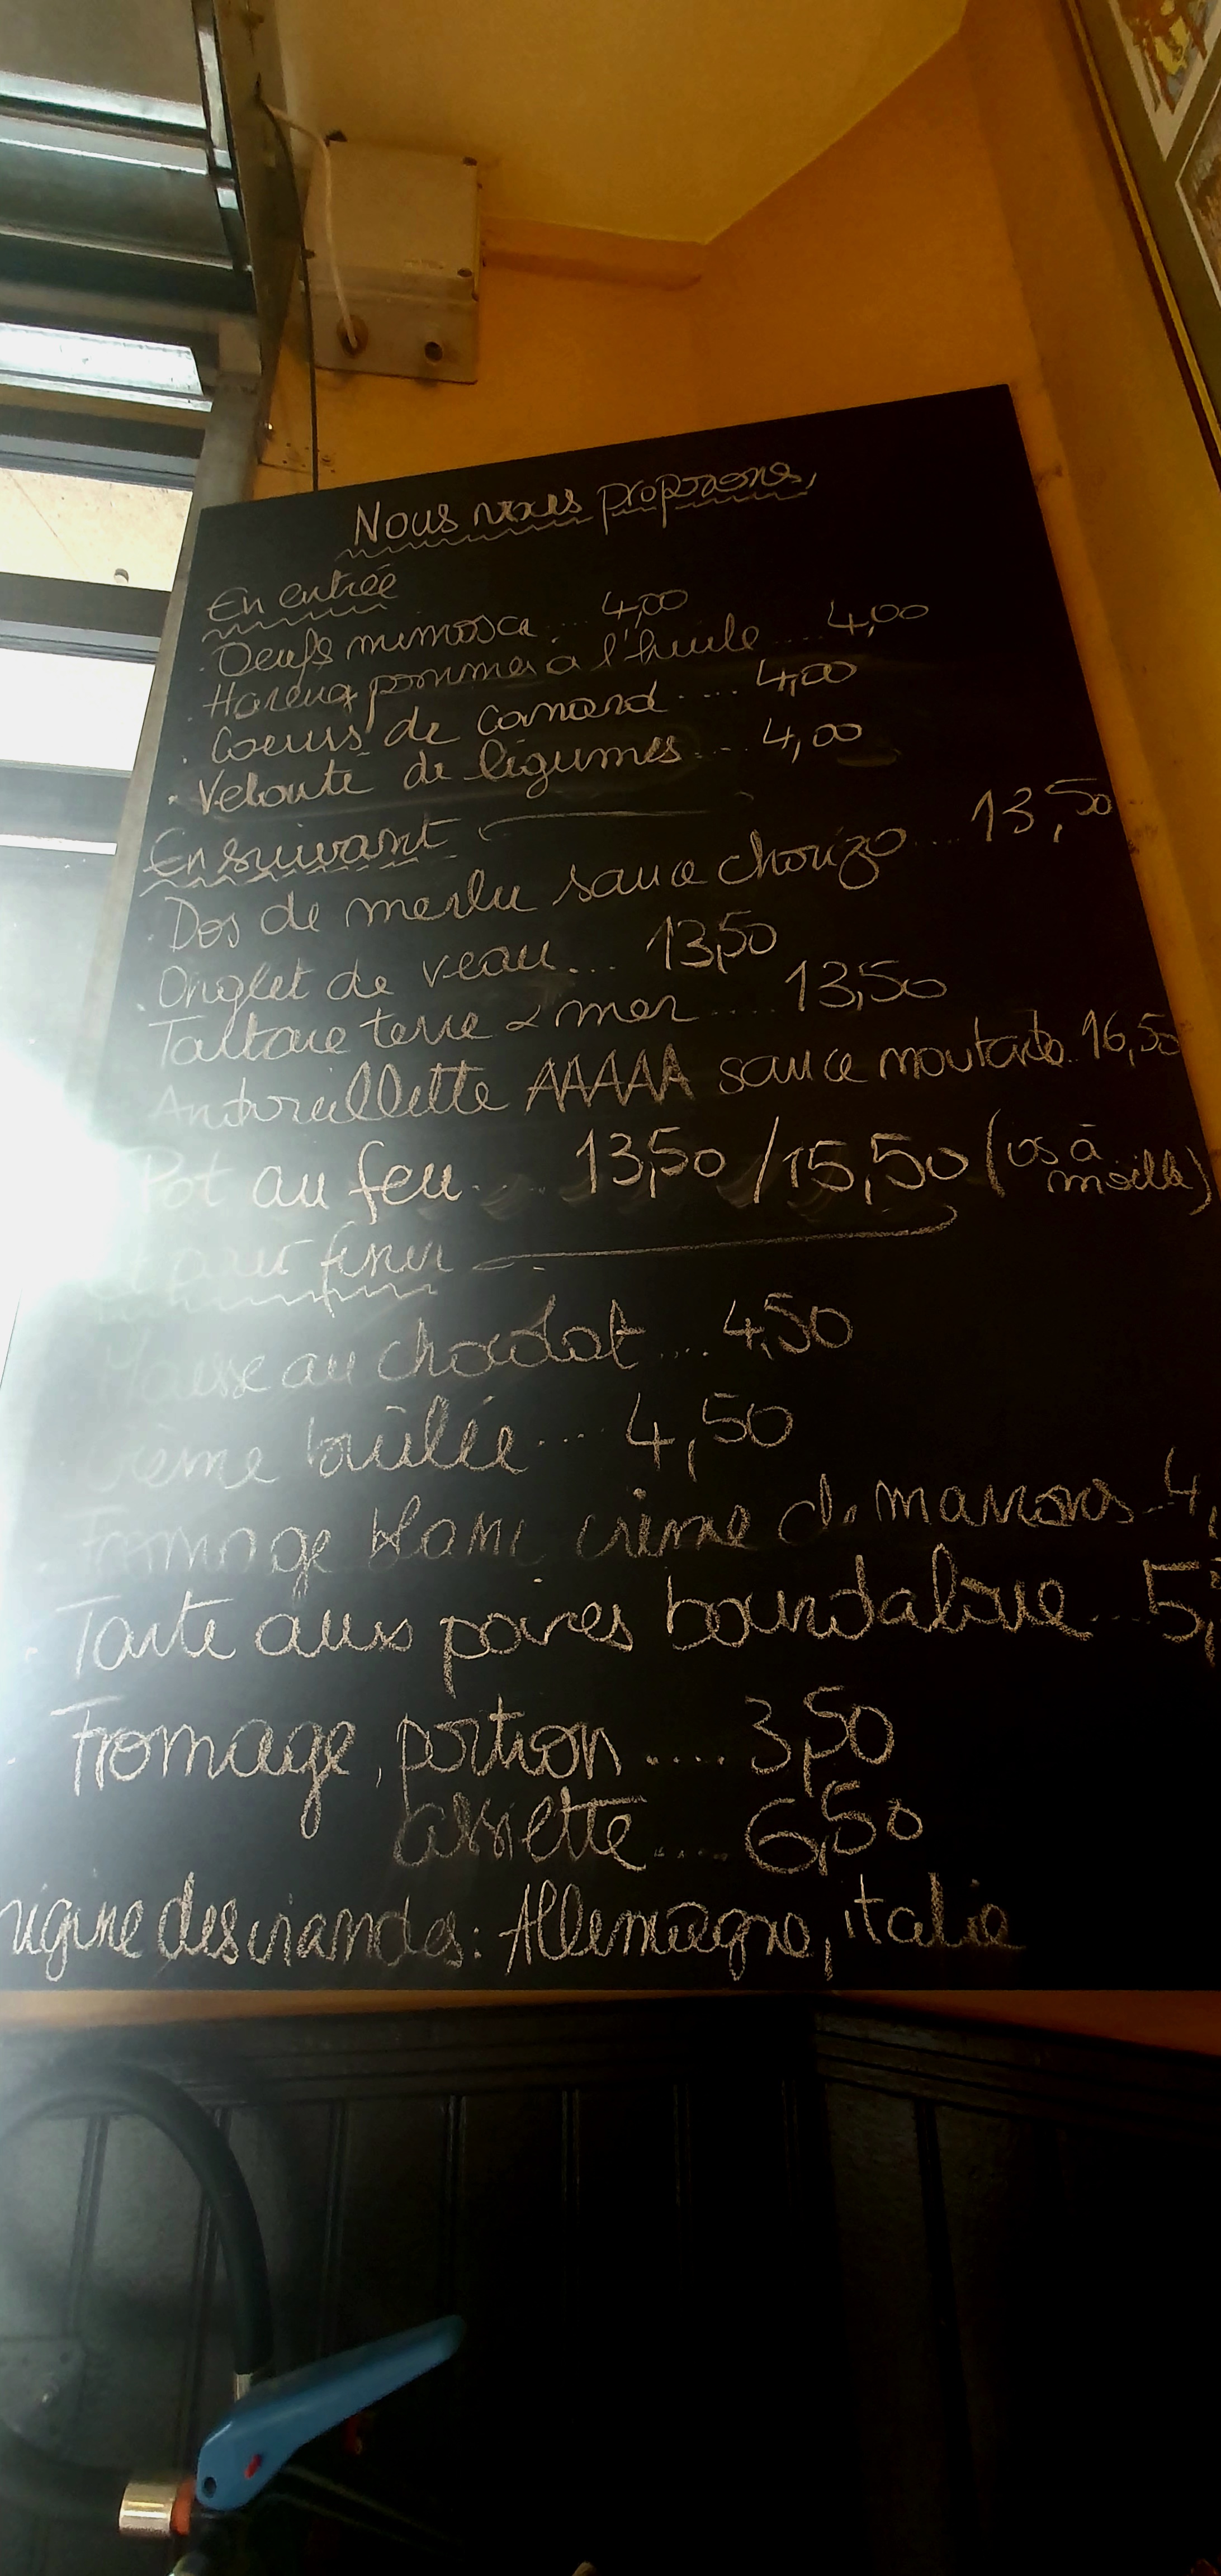 Nous vous proposons,
En entrée
. Oeufs mimosa .... 4,00
. Hareng pommes à l'huile .... 4,00
. Coeurs de canard .... 4,00
. Velouté de légumes .... 4,00
En suivant
. Dos de merlu sauce chorizo .... 13,50
. Onglet de veau .... 13,50
Tartare terre & mer .... 13,50
Andouillette AAAAA sauce moutarde .. 16,50
Pot au feu .... 13,50 / 15,50 (os à
moelle)
pour finir
Mousse au chocolat .... 4,50
Crème brûlée .... 4,50
. Fromage blanc crème de marrons .. 4,
. Tarte aux poires bourdaloue .... 5,
. Fromage, portion .... 3,50
assiette .... 6,50
rigine des viandes : Allemagne, italie